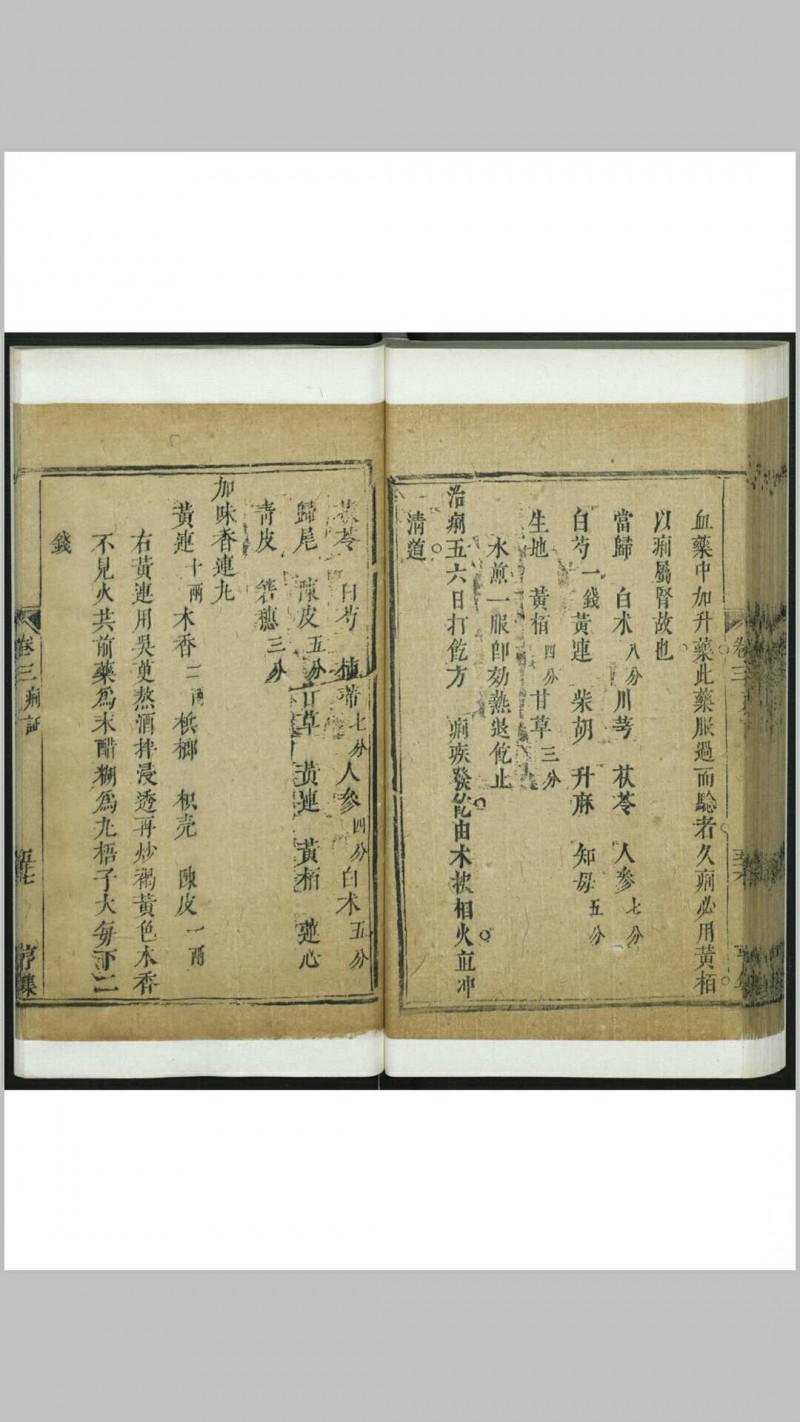 血藥中加升藥此藥服過而驗者久痢必用黃栢
以痢屬腎故也
當歸 白朮八分川芎 茯苓 人參七分
白芍一錢黃連 柴胡 升麻 知母五分
生地 黃栢四分甘草三分
水煎一服卽効熱退飥止
治痢五六日打飥方 痢疾發飥由木挾相火直冲
清道
茯苓 白芍 柿蒂七分人參四分白朮五分
歸尾 陳皮五分甘草 黃連 黃栢 蓮心
青皮 三分
加味香連丸
黃連十兩木香二兩檳榔 枳壳 陳皮一兩
右黃連用吳萸熬酒拌浸透再炒褐黃色木香
不見火共前藥爲末醋糊爲丸梧子大每下二
錢
卷三 痢証
亨集
卷三